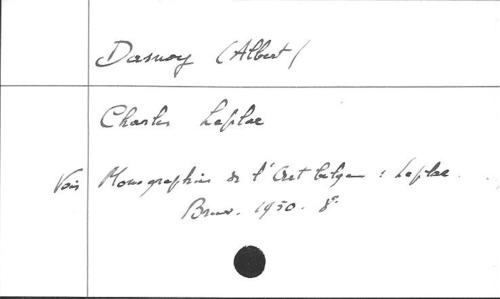 Dasnoy (Albert)
Charles Leplae
Voir Monographies de l'Art belge : Leplae.
Brux. 1950. 8°